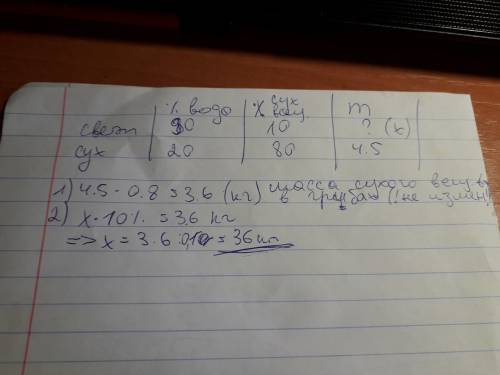 % водо % сух вещ. m
свеж 90 10 ? (x)
сух 20 80 4.5
1) 4.5 · 0.8 = 3.6 (кг) масса сухого вещ
в грибах (не измен)
2) x · 10% = 3,6 кг
=> x = 3.6 : 0,10 = 36 кг